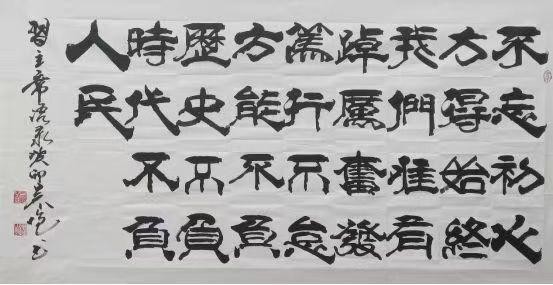 不忘初心
方得始終
我們唯有
踔厲奮發
篤行不怠
方能不負
歷史不負
時代不負
人民
習主席语录癸卯